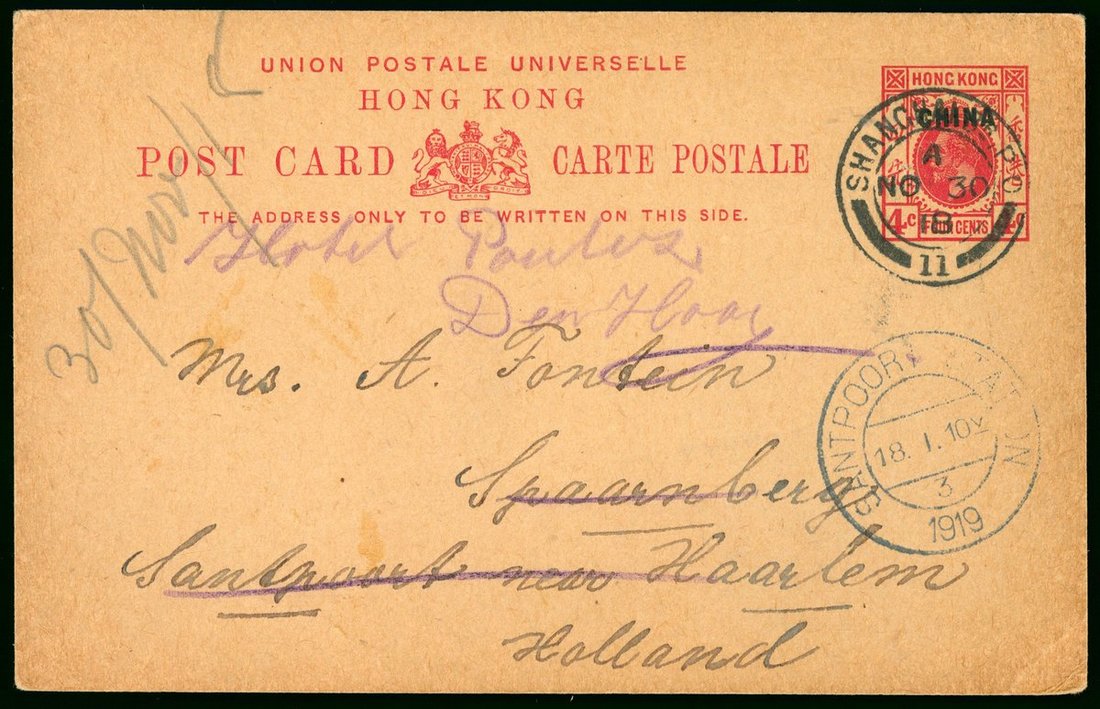 UNION POSTALE UNIVERSELLE
HONG KONG
POST CARD CARTE POSTALE
THE ADDRESS ONLY TO BE WRITTEN ON THIS SIDE.
HONG KONG
CHINA
4c FOUR CENTS 4c
SHANGHAI B.P.O
A
NO 30
18
11
30/Nov/
Hotel Paulez
Den Haag
Mrs. A. Fontein
Spaarnberg
Santpoort near Haarlem
Holland
SANTPOORT STATION
18. 1. 10V
3
1919